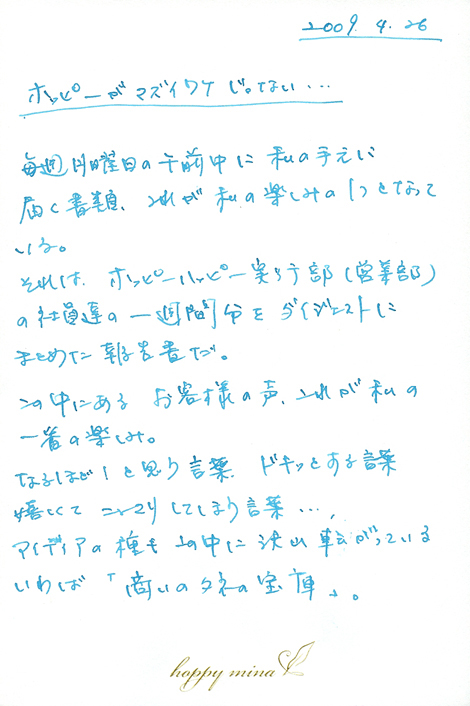 2009. 4. 26
ホッピーがマズイワケじゃない...
毎週月曜日の午前中に私の手元に
届く書類、これが私の楽しみの1つとなって
いる。
それは、ホッピーハッピー実行部(営業部)
の社員達の一週間分をダイジェストに
まとめた報告書だ。
この中にある お客様の声、これが私の
一番の楽しみ。
なるほど!と思う言葉、ドキッとする言葉
嬉しくてニンマリしてしまう言葉...、
アイディアの種もこの中に沢山転がっている
いわば「商いのタネの宝庫」。
happy mina